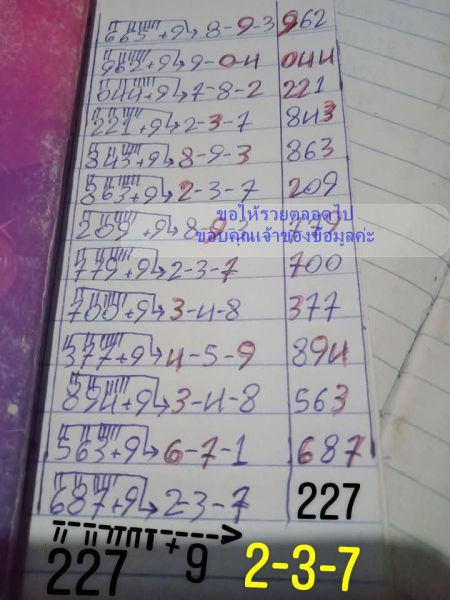 665+9→8-9-3 962
962+9→9-0-4 044
044+9→7-8-2 221
221+9→2-3-7 843
843+9→8-9-3 863
863+9→2-3-7 209
209+9→8-9-3 779
ขอให้รวยตลอดไป
ขอบคุณเจ้าของข้อมูลค่ะ
779+9→2-3-7 700
700+9→3-4-8 377
377+9→4-5-9 894
894+9→3-4-8 563
563+9→6-7-1 687
687+9→2-3-7 227
227 +9 2-3-7